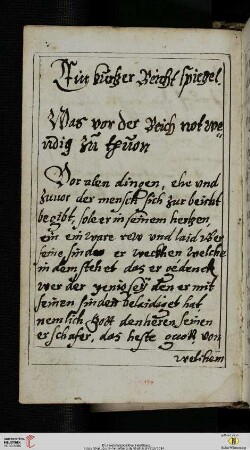 Ein kurtzer Beicht spiegel.
Was vor der Beich not we
ndig zů thuon
Vor alen dingen, ehe und
zuuor der mensch sich zur beicht
begibt, sole er in seinem hertzen
ein ware rew und laid uber
seine sinden er wecken welche
in dem stehet das er gedenck
wer der yenig sey den er mit
seinen sinden belaidiget hat
nemlich Gott den heren seinen
erschafer, das heste guott von
welchem